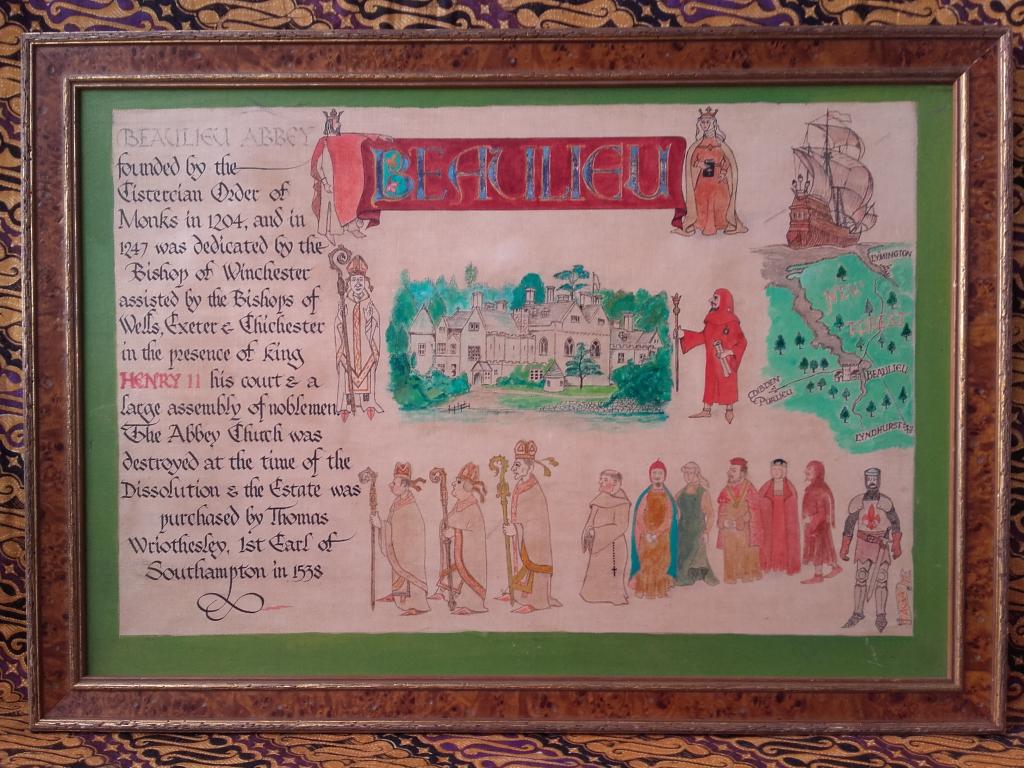 BEAULIEU ABBEY
founded by the
Cistercian Order of
Monks in 1204, and in
1247 was dedicated by the
Bishop of Winchester
assisted by the Bishops of
Wells, Exeter & Chichester
in the presence of king
HENRY 11 his court & a
large assembly of noblemen.
The Abbey Church was
destroyed at the time of the
Dissolution & the Estate was
purchased by Thomas
Wriothesley, 1st Earl of
Southampton in 1538
BEAULIEU
LYMINGTON
NEW
FOREST
BEAULIEU
DIBDEN
&
PURLIEU
LYNDHURST